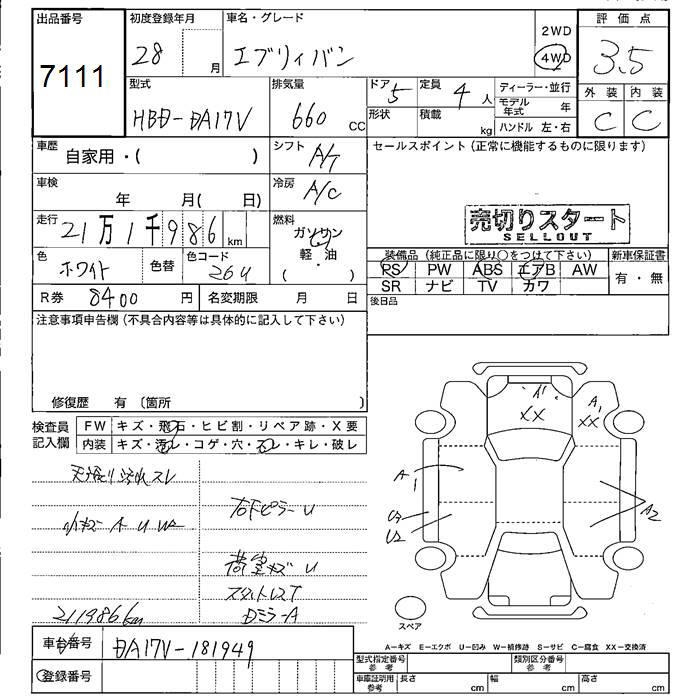 出品番号 初度登録年月 車名・グレード 2WD 評価点
7111 28 月 エブリィバン 4WD 3.5
型式 排気量 ドア 5 定員 4人 ディーラー・並行 外装 内装
HBD-DA17V 660 CC 形状 積載 kg モデル年式 年 C C
ハンドル 左・右
車歴 自家用・( ) シフト A/T セールスポイント (正常に機能するものに限ります)
車検 年 月( 日) 冷房 A/C
走行 21万1千986km 燃料 ガソリン 軽・油 ( )
売切りスタート
SELLOUT
色 ホワイト 色替 色コード 26U 装備品 (純正品に限り〇をつけて下さい) 新車保証書
PS PW ABS エアB AW 有・無
SR ナビ TV カワ
R券 8400 円 名変期限 月 日 後日品
注意事項申告欄 (不具合内容等は具体的に記入して下さい)
修復歴 有 〔箇所 〕
検査員記入欄 FW キズ・飛石・ヒビ割・リペア跡・X要
内装 キズ・汚レ・コゲ・穴・スレ・キレ・破レ
XX A1 XX
A1
A2
U2
小キズ A U W2
右下ピラーU
荷室キズ U
スタットレスT
DミラーA
211986km
スペア
車台番号 DA17V-181949
A-キズ E-エクボ U-凹み W-補修跡 S-サビ C-腐食 XX-交換済
登録番号
型式指定番号 参考 類別区分番号 参考
車庫証明用 参考 長さ cm 幅 cm 高さ cm